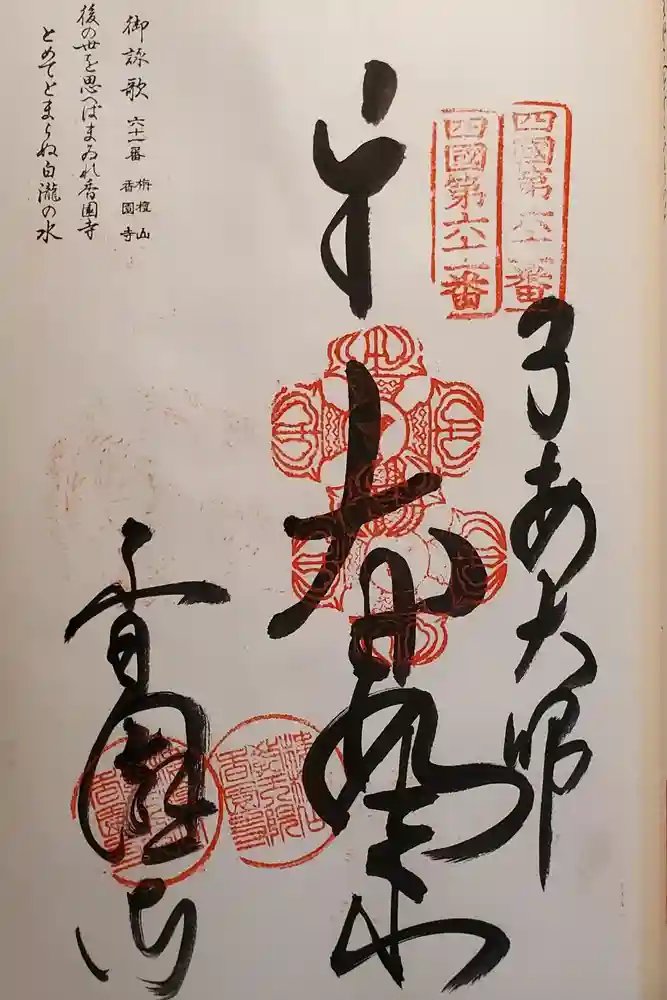 四國第六十一番
四國第六十一番
子安大師
大日如来
香園寺
御詠歌 六十一番 栴檀山 香園寺
後の世を思へばまゐれ香園寺
とめてとまらぬ白瀧の水